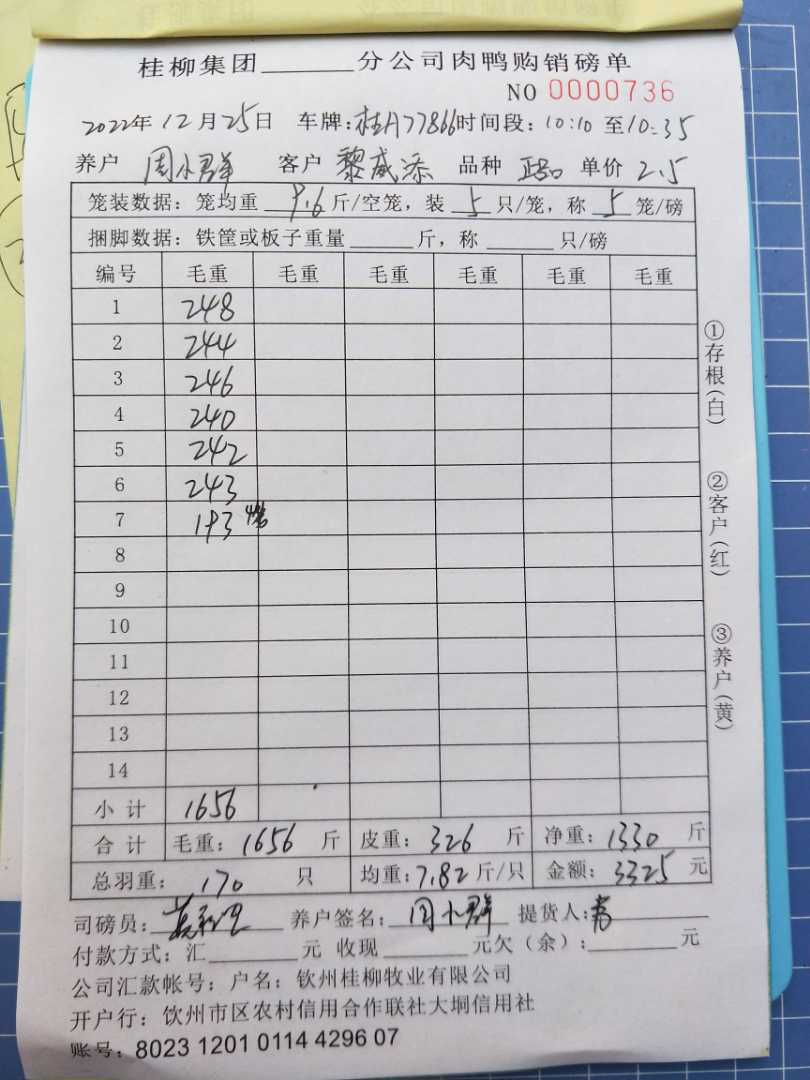 桂柳集团______分公司肉鸭购销磅单
NO 0000736
2022年12月25日 车牌:桂A77866 时间段:10:10 至10:35
养户 周小群 客户 黎威添 品种 正品 单价 2.5
笼装数据:笼均重 9.6 斤/空笼,装 5 只/笼,称 5 笼/磅
捆脚数据:铁筐或板子重量______斤,称______只/磅
编号 毛重 毛重 毛重 毛重 毛重 毛重
1 248
2 244
3 246
4 240
5 242
6 243
7 193 4笼
8
9
10
11
12
13
14
小计 1656
合计 毛重:1656 斤 皮重:326 斤 净重:1330 斤
总羽重:170 只 均重:7.82 斤/只 金额:3325 元
司磅员: 养户签名:周小群 提货人:
付款方式:汇______元 收现______元欠(余):______元
公司汇款帐号:户名:钦州桂柳牧业有限公司
开户行:饮州市区农村信用合作联社大垌信用社
账号:8023 1201 0114 4296 07
①存根(白)
②客户(红)
③养户(黄)